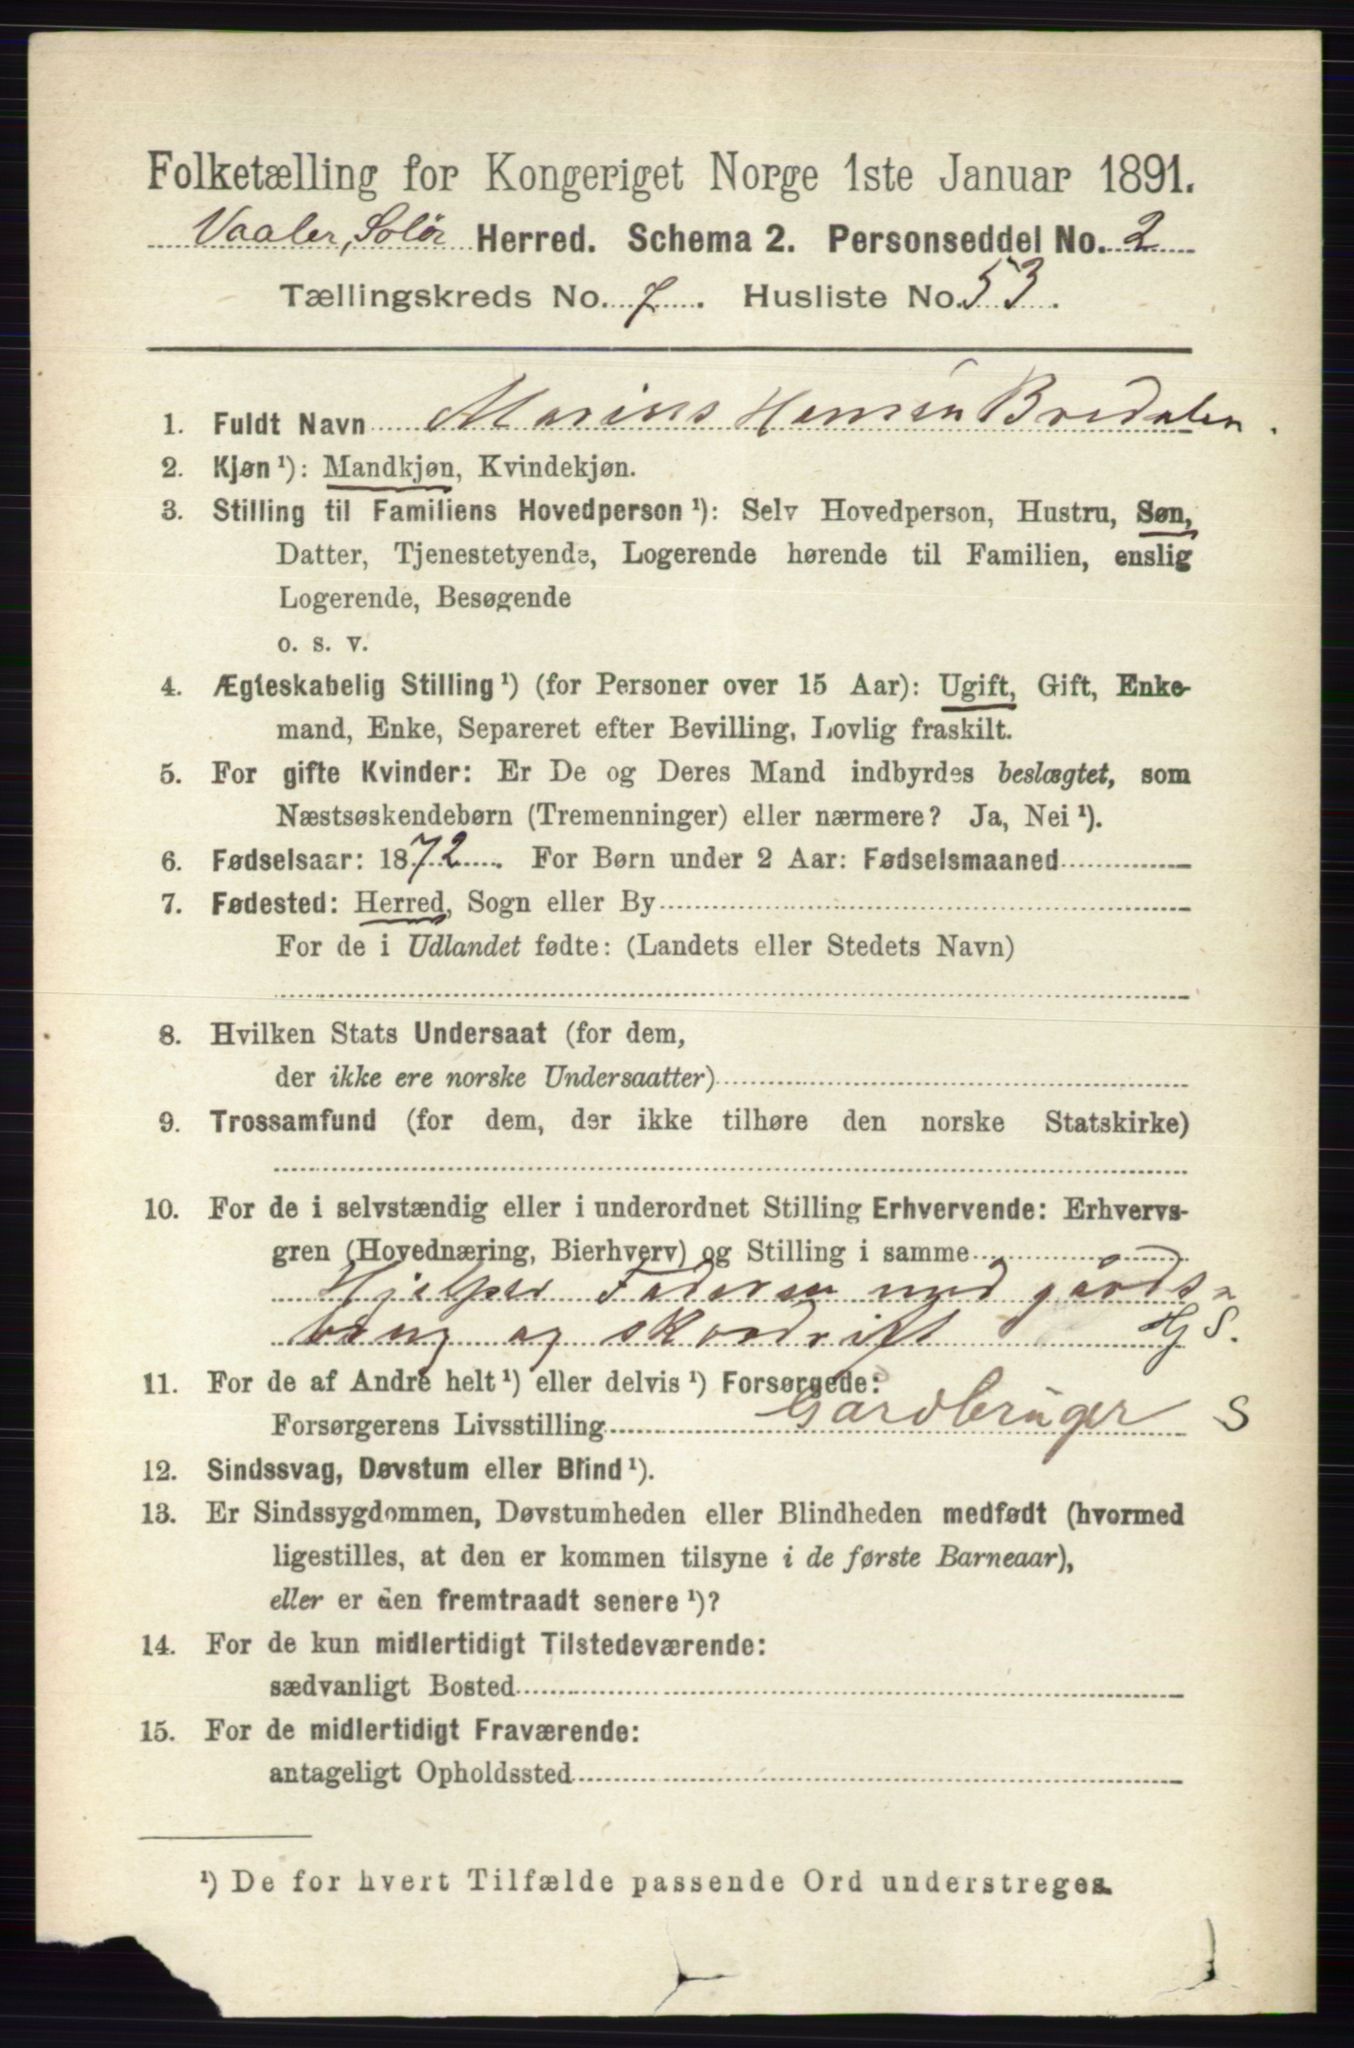 Folketælling for Kongeriget Norge 1ste Januar 1891.
Vaaler, Solör Herred. Schema 2. Personseddel No. 2
Tællingskreds No. 7. Husliste No. 53.
1. Fuldt Navn Marius Hansen Bredalen.
2. Kjøn ¹): Mandkjøn, Kvindekjøn.
3. Stilling til Familiens Hovedperson ¹): Selv Hovedperson, Hustru, Søn,
Datter, Tjenestetyende, Logerende hørende til Familien, enslig
Logerende, Besøgende
o. s. v.
4. Ægteskabelig Stilling ¹) (for Personer over 15 Aar): Ugift, Gift, Enke-
mand, Enke, Separeret efter Bevilling, Lovlig fraskilt.
5. For gifte Kvinder: Er De og Deres Mand indbyrdes beslægtet, som
Næstsøskendebørn (Tremenninger) eller nærmere? Ja, Nei ¹).
6. Fødselsaar: 1872. For Børn under 2 Aar: Fødselsmaaned
7. Fødested: Herred, Sogn eller By
For de i Udlandet fødte: (Landets eller Stedets Navn)
8. Hvilken Stats Undersaat (for dem,
der ikke ere norske Undersaatter)
9. Trossamfund (for dem, der ikke tilhøre den norske Statskirke)
10. For de i selvstændig eller i underordnet Stilling Erhvervende: Erhvervs-
gren (Hovednæring, Bierhverv) og Stilling i samme
Hjelper Faderen med gårds-
brug og skovdrift HG S.
11. For de af Andre helt ¹) eller delvis ¹) Forsørgede:
Forsørgerens Livsstilling Gardbruger S
12. Sindssvag, Døvstum eller Blind ¹).
13. Er Sindssygdommen, Døvstumheden eller Blindheden medfødt (hvormed
ligestilles, at den er kommen tilsyne i de første Barneaar),
eller er den fremtraadt senere ¹)?
14. For de kun midlertidigt Tilstedeværende:
sædvanligt Bosted
15. For de midlertidigt Fraværende:
antageligt Opholdssted
¹) De for hvert Tilfælde passende Ord understreges.